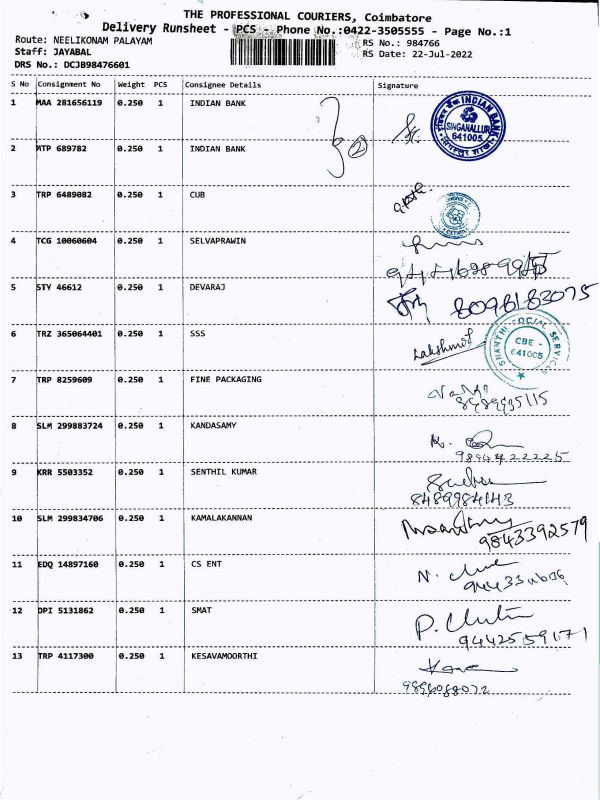 THE PROFESSIONAL COURIERS, Coimbatore
Delivery Runsheet - PCS - Phone No.:0422-3505555 - Page No.:1
Route: NEELIKONAM PALAYAM
RS No.: 984766
Staff: JAYABAL
RS Date: 22-Jul-2022
DRS No.: DCJB98476601
S No Consignment No Weight PCS Consignee Details Signature
1 MAA 281656119 0.250 1 INDIAN BANK
INDIAN BANK
SINGANALLUR
641005
2 MTP 689782 0.250 1 INDIAN BANK
2
3 TRP 6489082 0.250 1 CUB
4 TCG 10060604 0.250 1 SELVAPRAWIN
5 STY 46612 0.250 1 DEVARAJ
8098183075
6 TRZ 365064401 0.250 1 SSS
Lakshmi
SHANTHI SOCIAL SERVICES
CBE -
641005
7 TRP 8259609 0.250 1 FINE PACKAGING
8 SLM 299883724 0.250 1 KANDASAMY
K.
9894422225
9 KRR 5503352 0.250 1 SENTHIL KUMAR
8489984143
10 SLM 299834706 0.250 1 KAMALAKANNAN
9843392579
11 EDQ 14897160 0.250 1 CS ENT
N.
12 DPI 5131862 0.250 1 SMAT
P.
9442559171
13 TRP 4117300 0.250 1 KESAVAMOORTHI